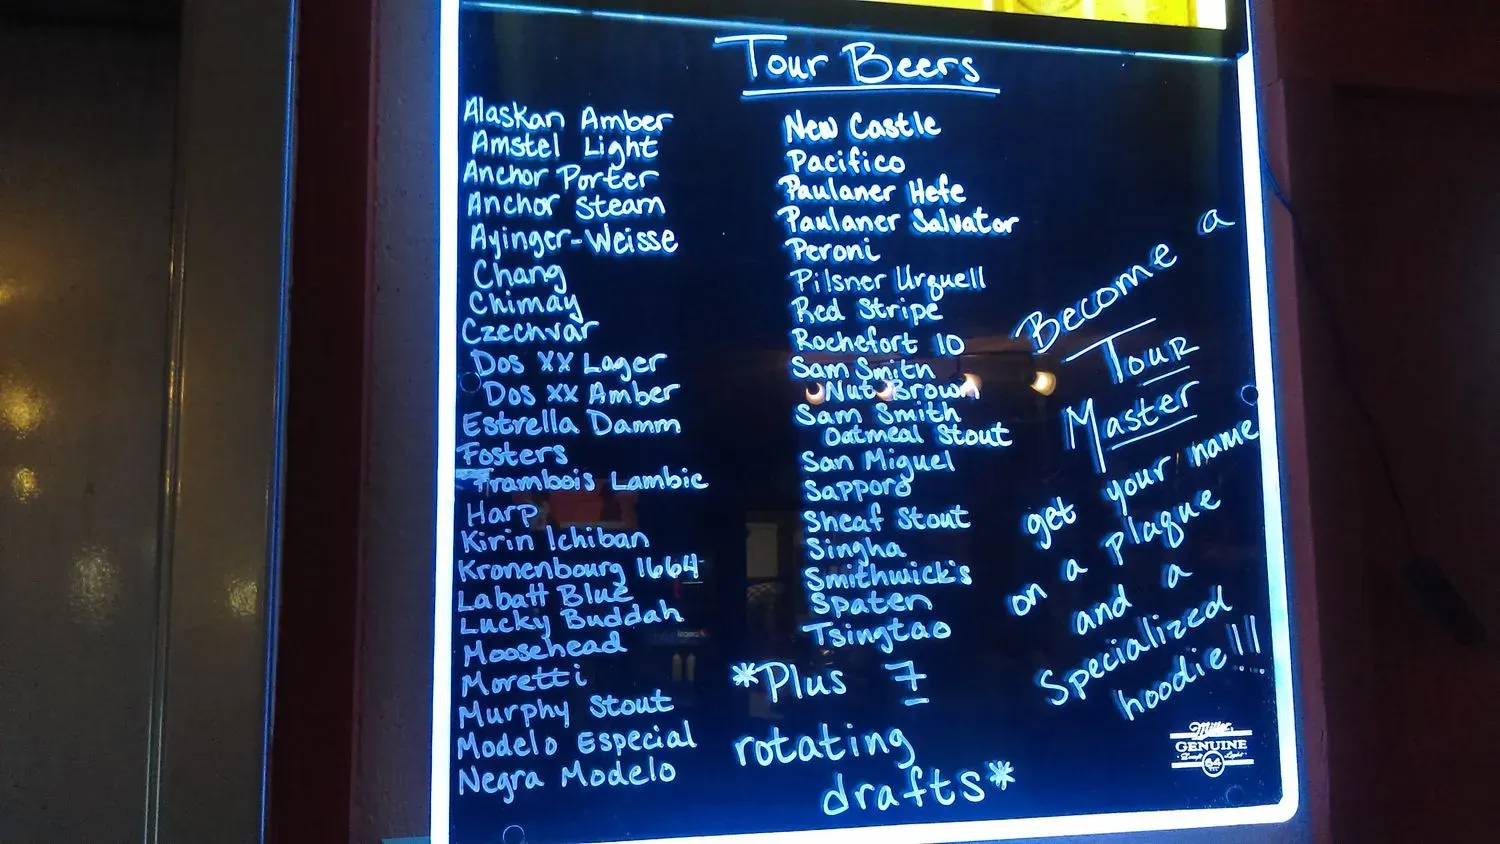 Tour Beers
Alaskan Amber
Amstel Light
Anchor Porter
Anchor Steam
Ayinger-Weisse
Chang
Chimay
Czechvar
Dos XX Lager
Dos XX Amber
Estrella Damm
Fosters
Frambois Lambic
Harp
Kirin Ichiban
Kronenbourg 1664
Labatt Blue
Lucky Buddah
Moosehead
Moretti
Murphy Stout
Modelo Especial
Negra Modelo
New Castle
Pacifico
Paulaner Hefe
Paulaner Salvator
Peroni
Pilsner Urquell
Red Stripe
Rochefort 10
Sam Smith
Nut Brown
Sam Smith
Oatmeal Stout
San Miguel
Sapporo
Sheaf Stout
Singha
Smithwick's
Spaten
Tsingtao
*Plus 7
rotating
drafts*
Become a
Tour
Master
get your name
on a plaque
and a
Specialized
hoodie!!!
Miller
GENUINE
Draft Light
64